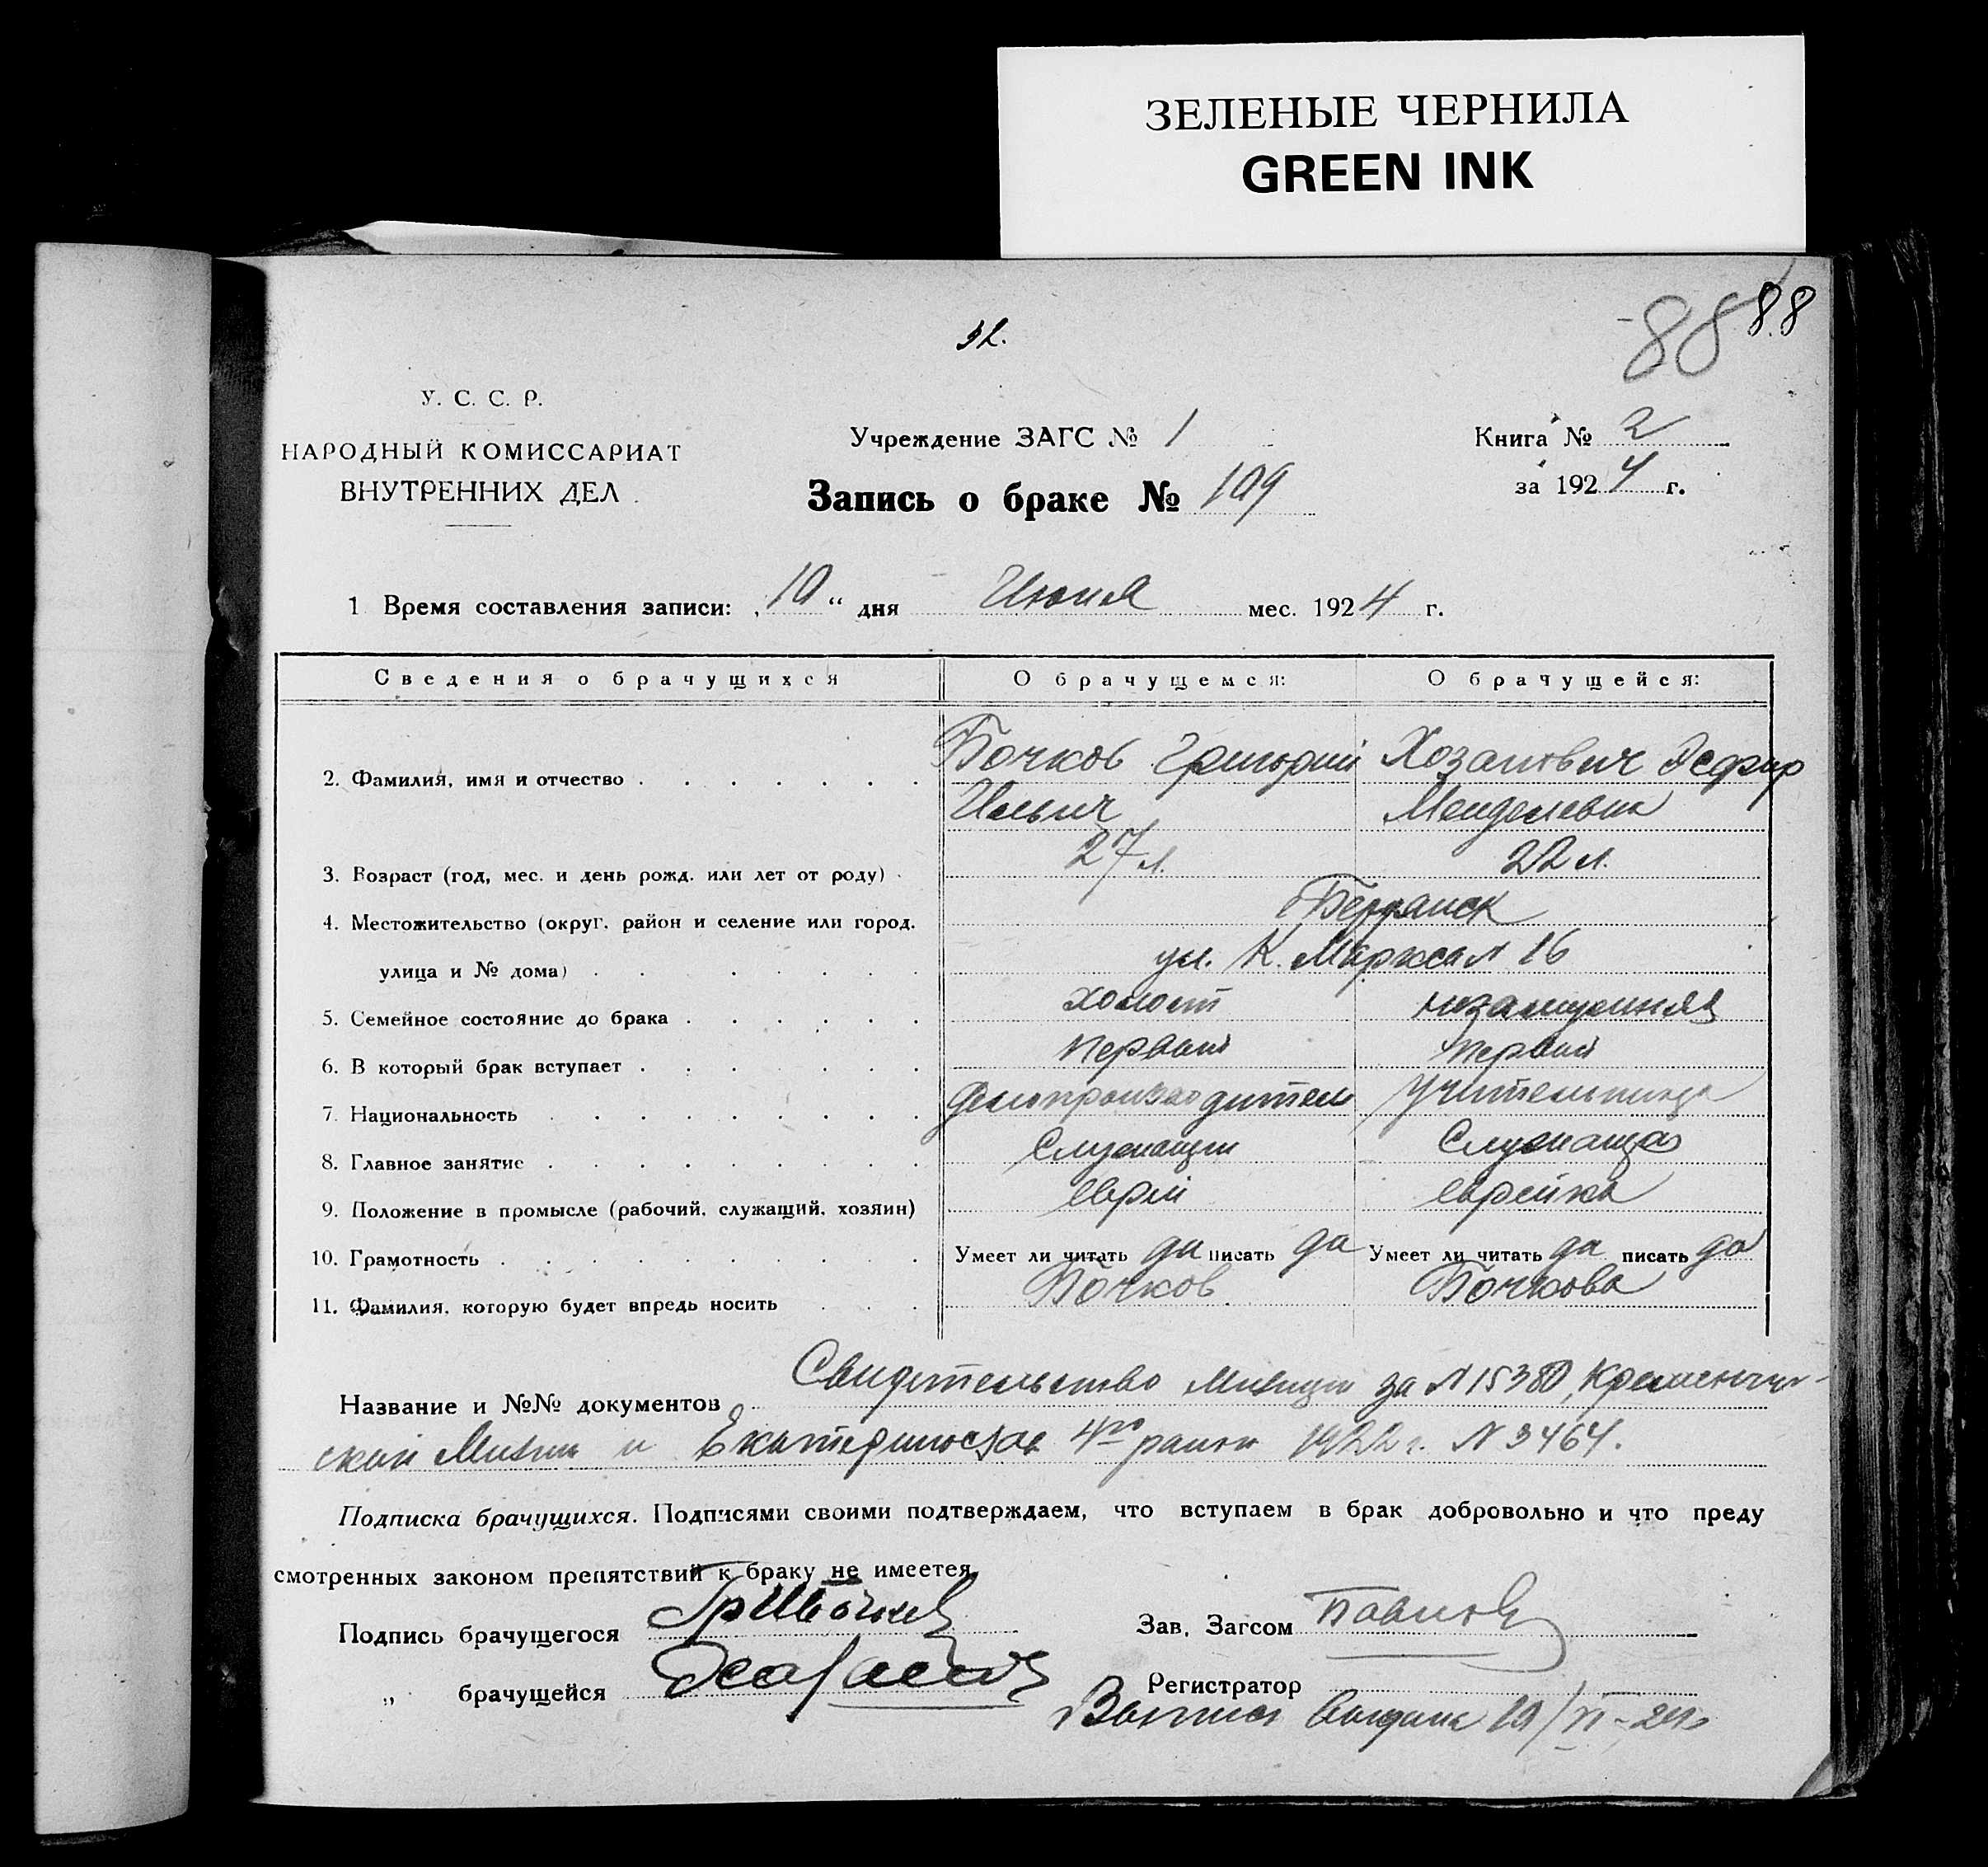 ЗЕЛЕНЫЕ ЧЕРНИЛА
GREEN INK
88 88
32.
У. С. С. Р.
НАРОДНЫЙ КОМИССАРИАТ
ВНУТРЕННИХ ДЕЛ
Учреждение ЗАГС № 1
Книга № 2
за 1924 г.
Запись о браке № 109
1 Время составления записи: „10“ дня Июня мес. 1924 г.
Сведения о брачущихся О брачущемся: О брачущейся:
2. Фамилия, имя и отчество Бочков Григорий Хозанович Эсфир
Ильич Менделевна
3. Возраст (год, мес. и день рожд. или лет от роду) 27 л. 22 л.
4. Местожительство (округ. район и селение или город. Бердянск
улица и № дома) ул. К. Маркса № 16
5. Семейное состояние до брака холост незамужняя
6. В который брак вступает первый первый
7. Национальность делопроизводитель учительница
8. Главное занятие Служащий Служащая
9. Положение в промысле (рабочий, служащий, хозяин) еврей еврейка
10. Грамотность Умеет ли читать да писать да Умеет ли читать да писать да
11. Фамилия, которую будет впредь носить Бочков Бочкова
Название и №№ документов Свидетельство Милиции за № 15380, Кременчуг-
ской Милиции и Екатеринослав 4го района 1922 г. № 3464.
Подписка брачущихся. Подписями своими подтверждаем, что вступаем в брак добровольно и что преду
смотренных законом препятствий к браку не имеется.
Подпись брачущегося
Зав. Загсом
„ брачущейся
Регистратор
Выпись выдана 10/VI-24г